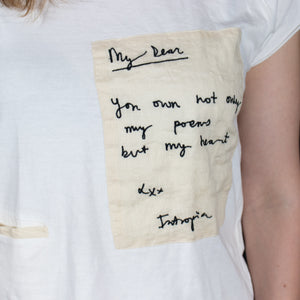 My Dear
you own not only
my poems
but my heart
xxx
Intropia